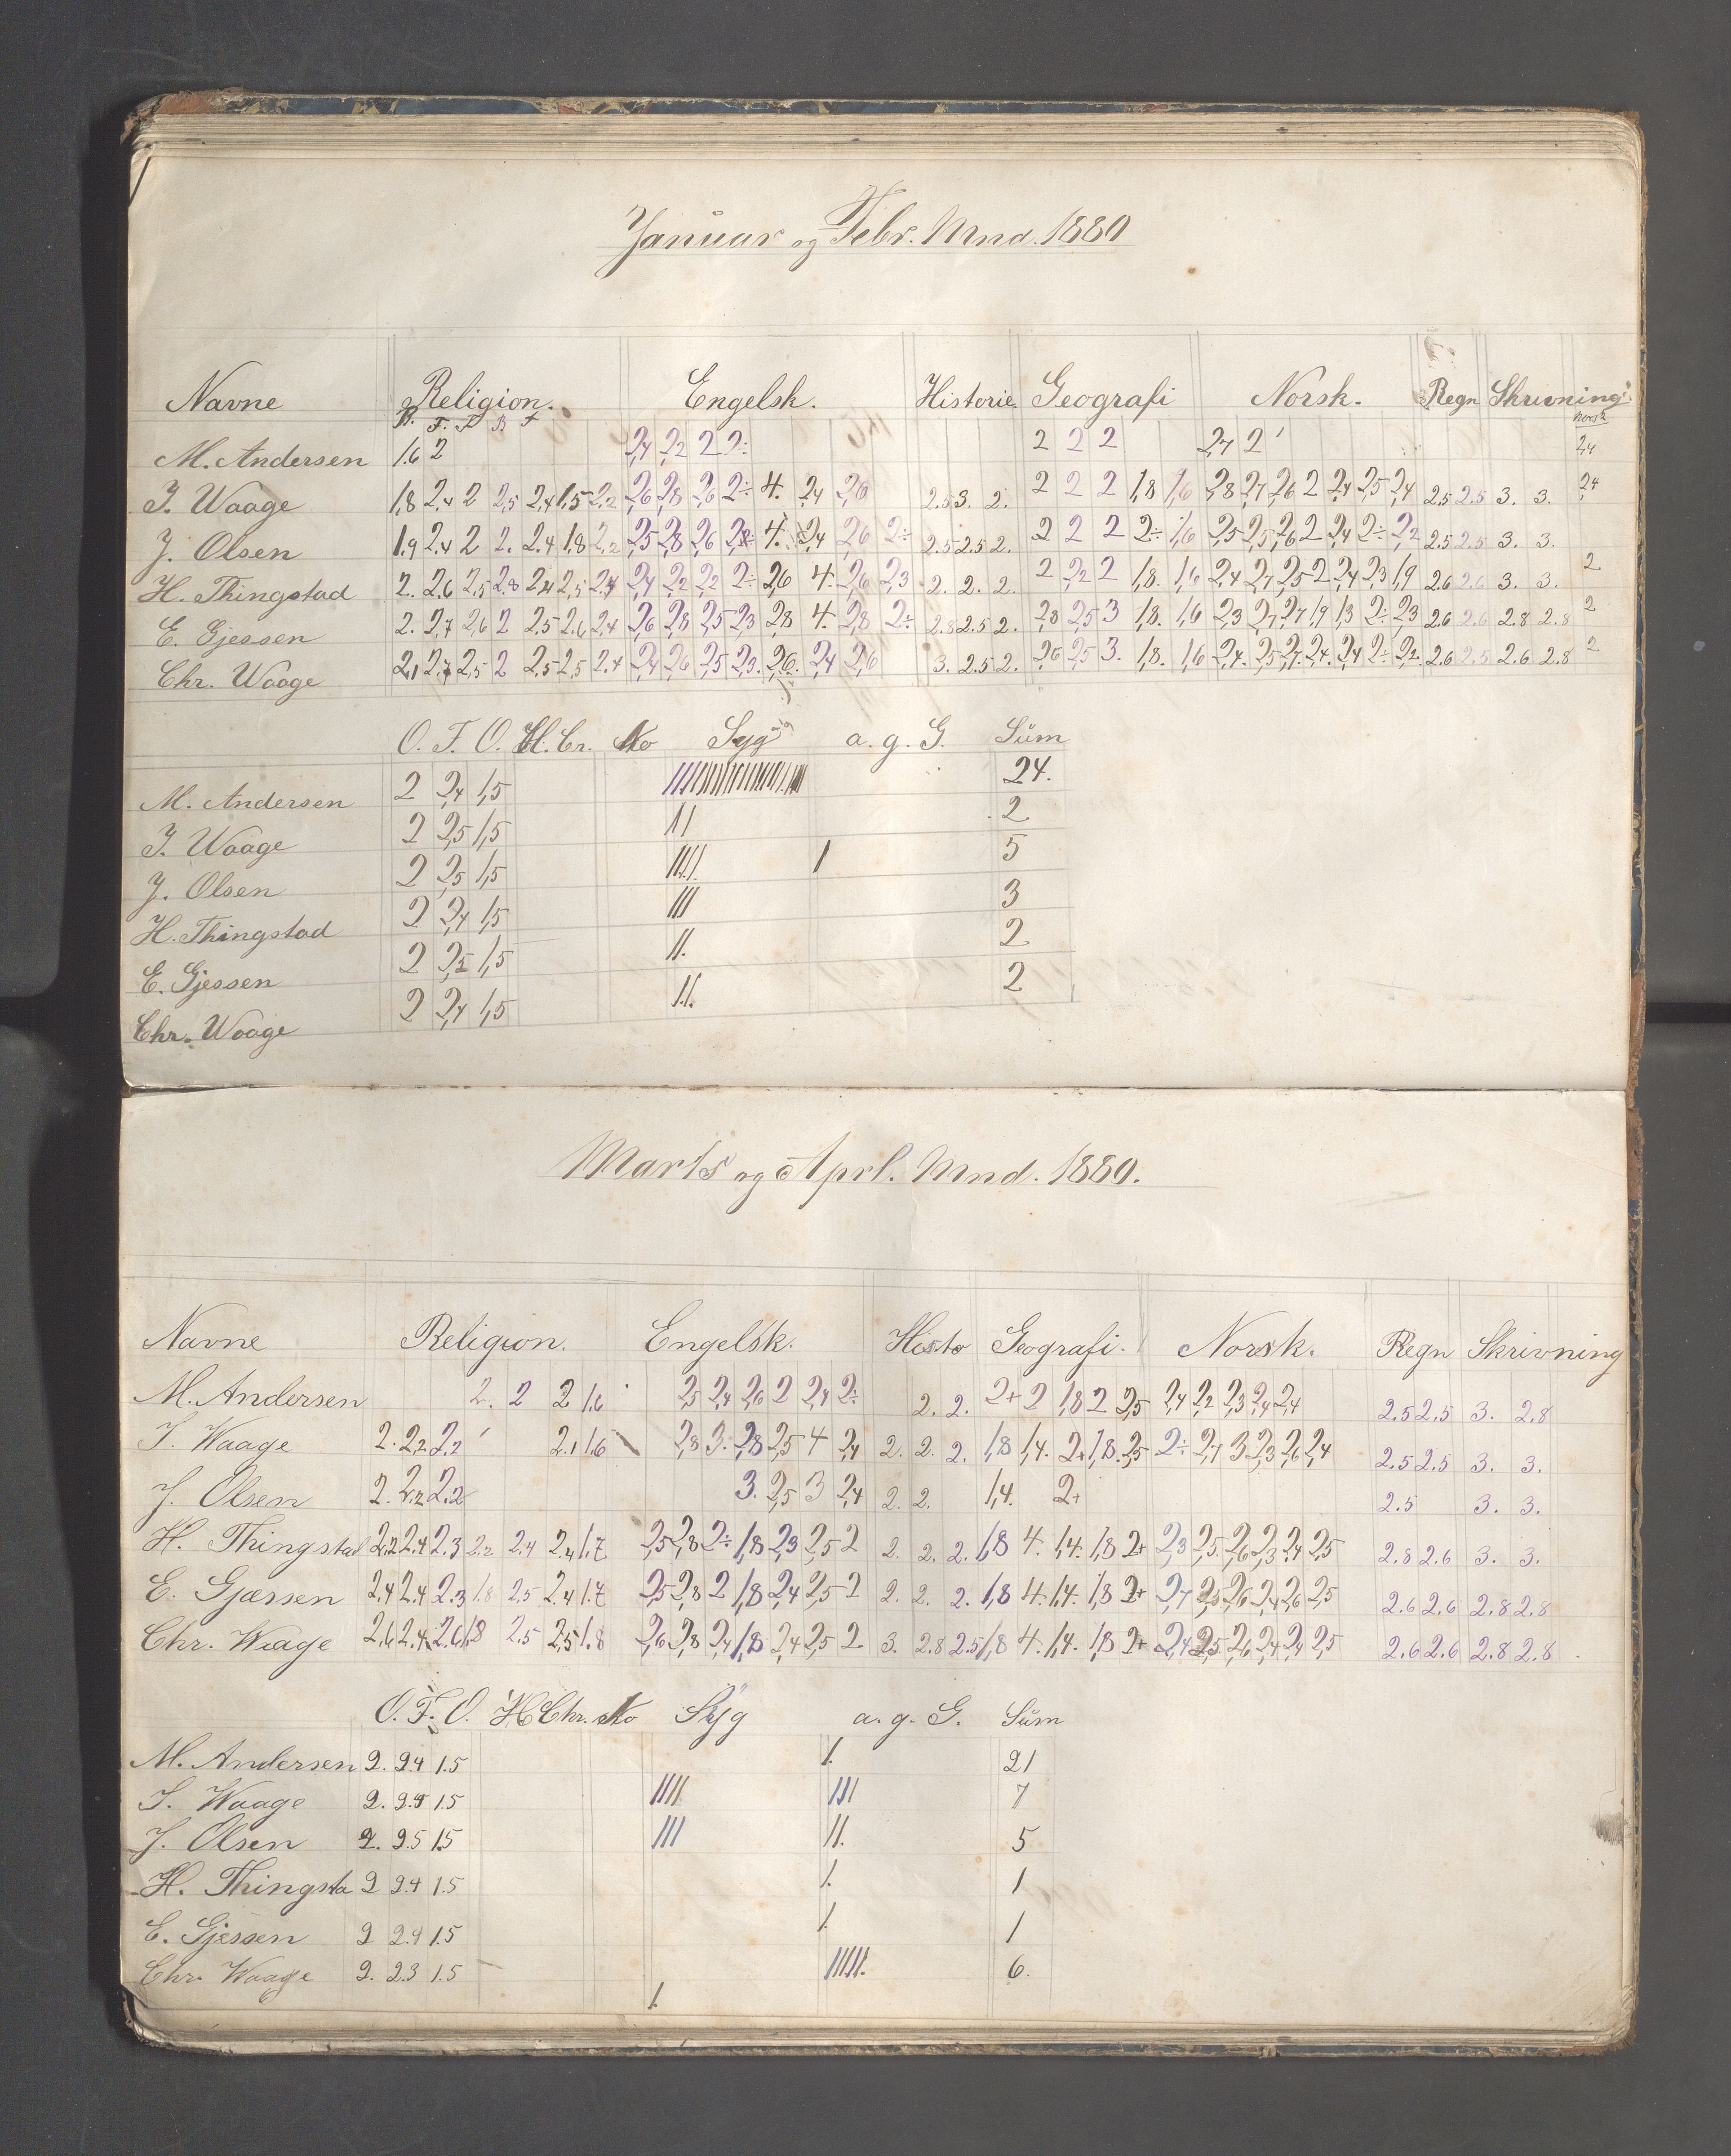 Januar og Febr. Mnd. 1880
Navne Religion. Engelsk. Historie. Geografi Norsk. Regn Skrivning
R. F. F R F Norsk
M. Andersen 1.6 2 2,4 2,2 2 2÷ 2 2 2 2,7 2 2,4
J. Waage 1,8 2,4 2 2,5 2,4 1,5 2,2 2,6 2,8 2,6 2÷ 4. 2,4 2,6 2.5 3. 2. 2 2 2 1,8 1,6 2,8 2,7 2,6 2 2,4 2,5 2,4 2.5 2.5 3. 3. 2,4
J. Olsen 1.9 2.4 2 2. 2.4 1.8 2,2 2,5 2,8 2,6 2,8÷ 4. 2,4 2,6 2÷ 2.5 2.5 2. 2 2 2 2÷ 1,6 2,5 2,5 2,6 2 2,4 2÷ 2,2 2.5 2.5 3. 3.
H. Thingstad 2. 2.6 2,5 2.8 2.4 2,5 2.4 2,4 2,2 2,2 2÷ 2,6 4. 2,6 2,3 2. 2. 2. 2 2,2 2 1,8. 1,6 2,4 2,7 2,5 2 2,4 2,3 1,9 2.6 2.6 3. 3. 2.
E. Gjessen 2. 2,7 2,6 2 2.5 2.6 2.4 2,6 2,8 2,5 2,3 2,8 4. 2,8 2÷ 2.8 2.5 2. 2,8 2,5 3 1,8. 1,6 2,3 2,7 2,7 1,9 1,3 2÷ 2,3 2.6 2.6 2.8 2.8 2.
Chr. Waage 2,1 2,7 2,5 2 2.5 2.5 2.4 2,4 2,6 2,5 2,3. 2,6. 2,4 2,6 3. 2.5 2. 2,6 2,5 3. 1,8. 1,6 2,4. 2,5 2,7. 2,4. 2,4 2÷ 2,2. 2.6 2.5 2.6 2.8 2
O. F. O. H. Cr. No Syg a. g. G. Sum
M. Andersen 2 2,4 1,5 24.
J. Waage 2 2,5 1,5 || 2
J. Olsen 2 2,5 1,5 |||| | 5
H. Thingstad 2 2,4 1,5 ||| 3
E. Gjessen 2 2,5 1,5 ||. 2
Chr. Waage 2 2,4 1,5 ||. 2
Marts og Aprl. Mnd. 1880.
Navne Religion. Engelsk. Histo Geografi. Norsk. Regn Skrivning
M. Andersen 2. 2 2 1.6 2,5 2,4 2,6 2 2,4 2÷ 2. 2. 2+ 2 1,8 2 2,5 2,4 2,2 2,3 2,4 2,4 2.5 2.5 3. 2.8
J. Waage 2. 2,2 2,2 2.1 1.6 2,8 3. 2,8 2,5 4 2,4 2. 2. 2. 1,8 1,4. 2+ 1,8. 2,5 2÷ 2,7 3 2,3 2,6 2,4 2.5 2.5 3. 3.
J. Olsen 2. 2.2 2.2 3. 2,5 3 2,4 2. 2. 1,4. 2+ 2.5 3. 3.
H. Thingstad 2.2 2.4 2.3 2.2 2.4 2.4 1.7 2,5 2,8 2÷ 1,8 2,3 2,5 2 2. 2. 2. 1,8 4. 1,4. 1,8 2+ 2,3 2,5. 2,6 2,3 2,4 2,5 2.8 2.6 3. 3.
E. Gjæssen 2.4 2.4 2.3 1.8 2.5 2.4 1.7 2,5 2,8 2 1,8 2,4 2,5 2 2. 2. 2. 1,8 4. 1,4. 1,8 2+ 2,7 2,5 2,6 2,4 2,6 2,5 2.6 2.6 2.8 2.8
Chr. Waage 2.6 2.4. 2.6 1.8 2.5 2.5 1.8 2,6 2,8 2,4 1,8 2,4 2,5 2 3. 2.8 2.5 1,8 4. 1,4. 1,8 2+ 2,4 2,5. 2,6 2,4 2,4 2,5 2.6 2.6 2.8 2.8
O. F. O. H Chr. No Syg a. g. G. Sum
M. Andersen 2. 2.4 1.5 |. 21
J. Waage 2. 2.5 1.5 |||| ||| 7
J. Olsen 2. 2.5 1.5 ||| ||. 5
H. Thingsta 2 2.4 1.5 |. 1
E. Gjessen 2 2.4 1.5 |. 1
Chr. Waage 2. 2.3 1.5 |||||. 6.
|.